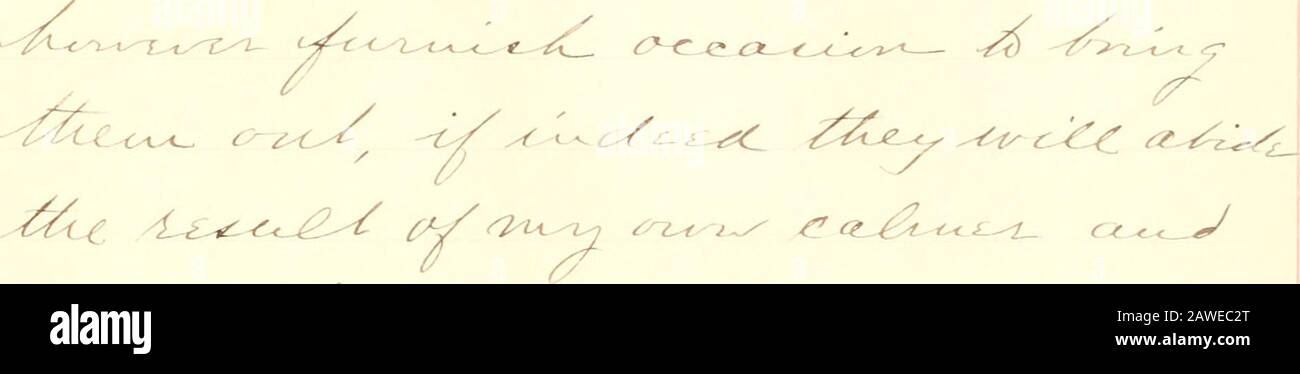 however furnish occasion to bring
them out, if indeed they will abide
the result of my own calmer and
alamy
Image ID: 2AWEC2T
www.alamy.com